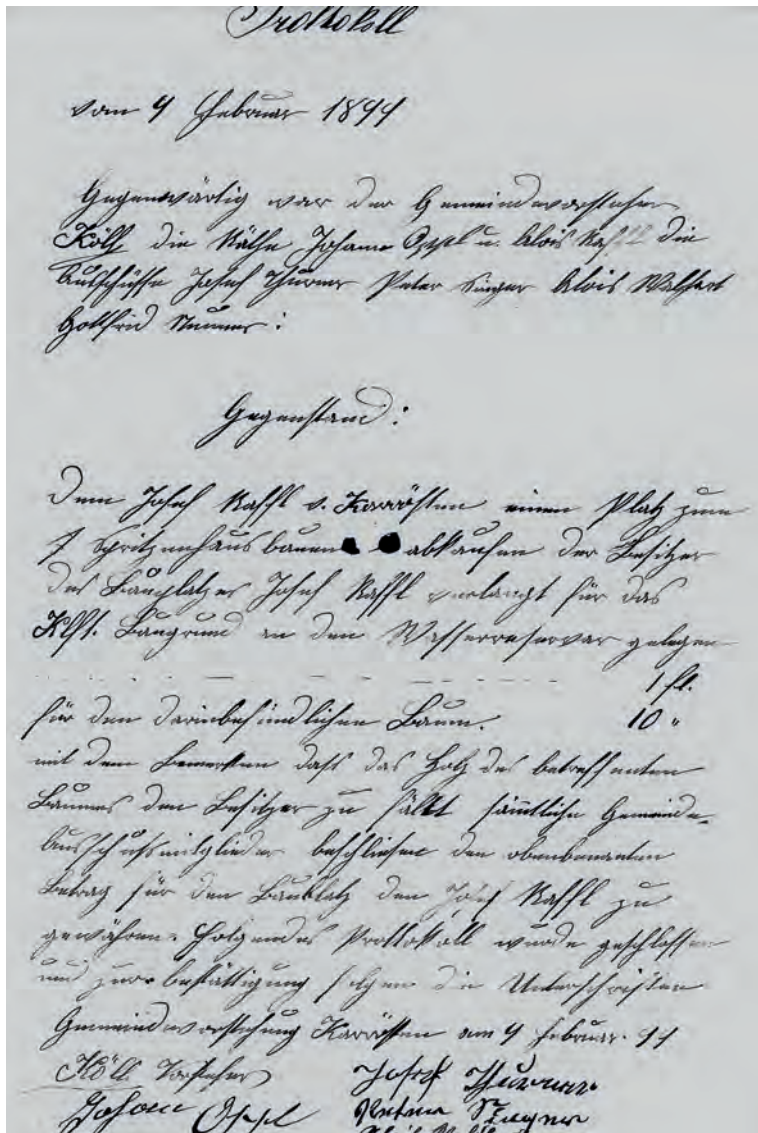 Prottokoll
vom 4 Februar 1894
Gegenwärtig war der Gemeindevorsteher
Köll die Räthe Johann Oppl u. Alois Raffl die
Ausschüsse Josef Thurner Peter Singer Alois Walfart
Gottfrid :
Gegenstand:
Dem Josef Raffl v. Karrösten einen Platz zum
Spritzenhaus bauen abkaufen der Besitzer
des Bauplatzes Josef Raffl verlangt für das
Klft. Baugrund an den Wasserreservar gelegen
1 fl.
für den darinbefindlichen Baum. 10 "
mit dem Bemerken daß das Holz des betreffenten
Baumes den Besitzer zu fällt sämtliche Gemeinde-
Ausschußmitglieder beschließen den obenbenanten
Betrag für den Bauplatz den Josef Raffl zu
gewähren. Folgendes Prottokoll wurde geschlossen
und zur bestättigung folgen die Unterschriften
Gemeindevorstehung Karrösten am 4 Februar. 94
Köll Vorsteher Josef Thurner
Johann Oppl Singer